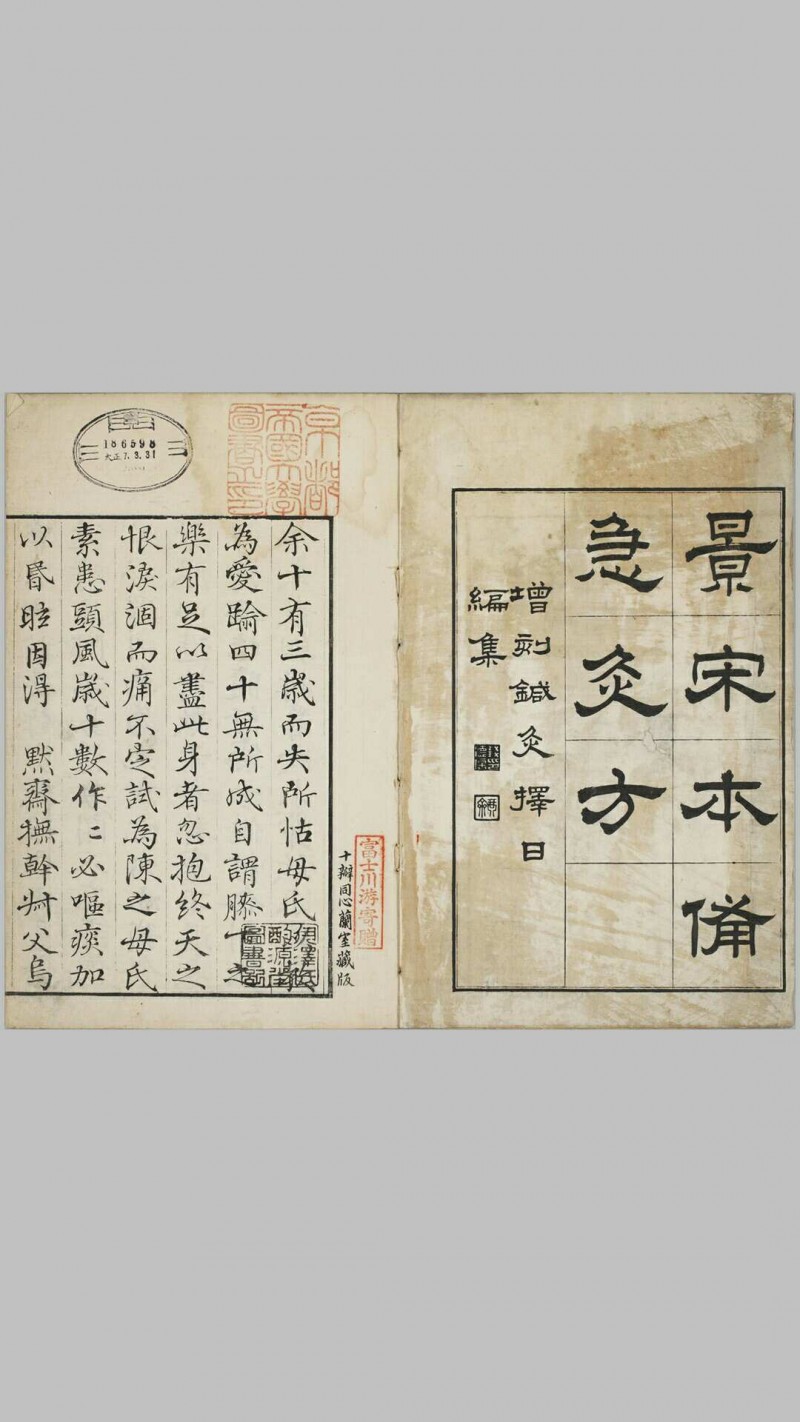 景宋本備
急灸方
增刻鍼灸擇日
編集
十瓣同心蘭室藏版
富士川游寄贈
京都
帝國大學
圖書之印
186598
大正7.3.31
余十有三歲而失所怙母氏
為愛踰四十無所成自謂膝下之
樂有足以盡此身者忽抱終天之
恨淚涸而痛不定試為陳之母氏
素患頭風歲十數作〻必嘔痰加
以昬眩因得　默齋撫幹叔父烏